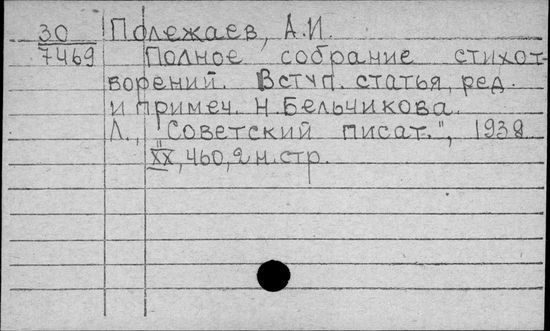 30 Полежаев, А.И.
7469 Полное собрание стихот-
ворений. Вступ. статья, ред.
и примеч. Н. Бельчикова.
Л., "Советский писат.", 1938
XX, 460, 2 н. стр.